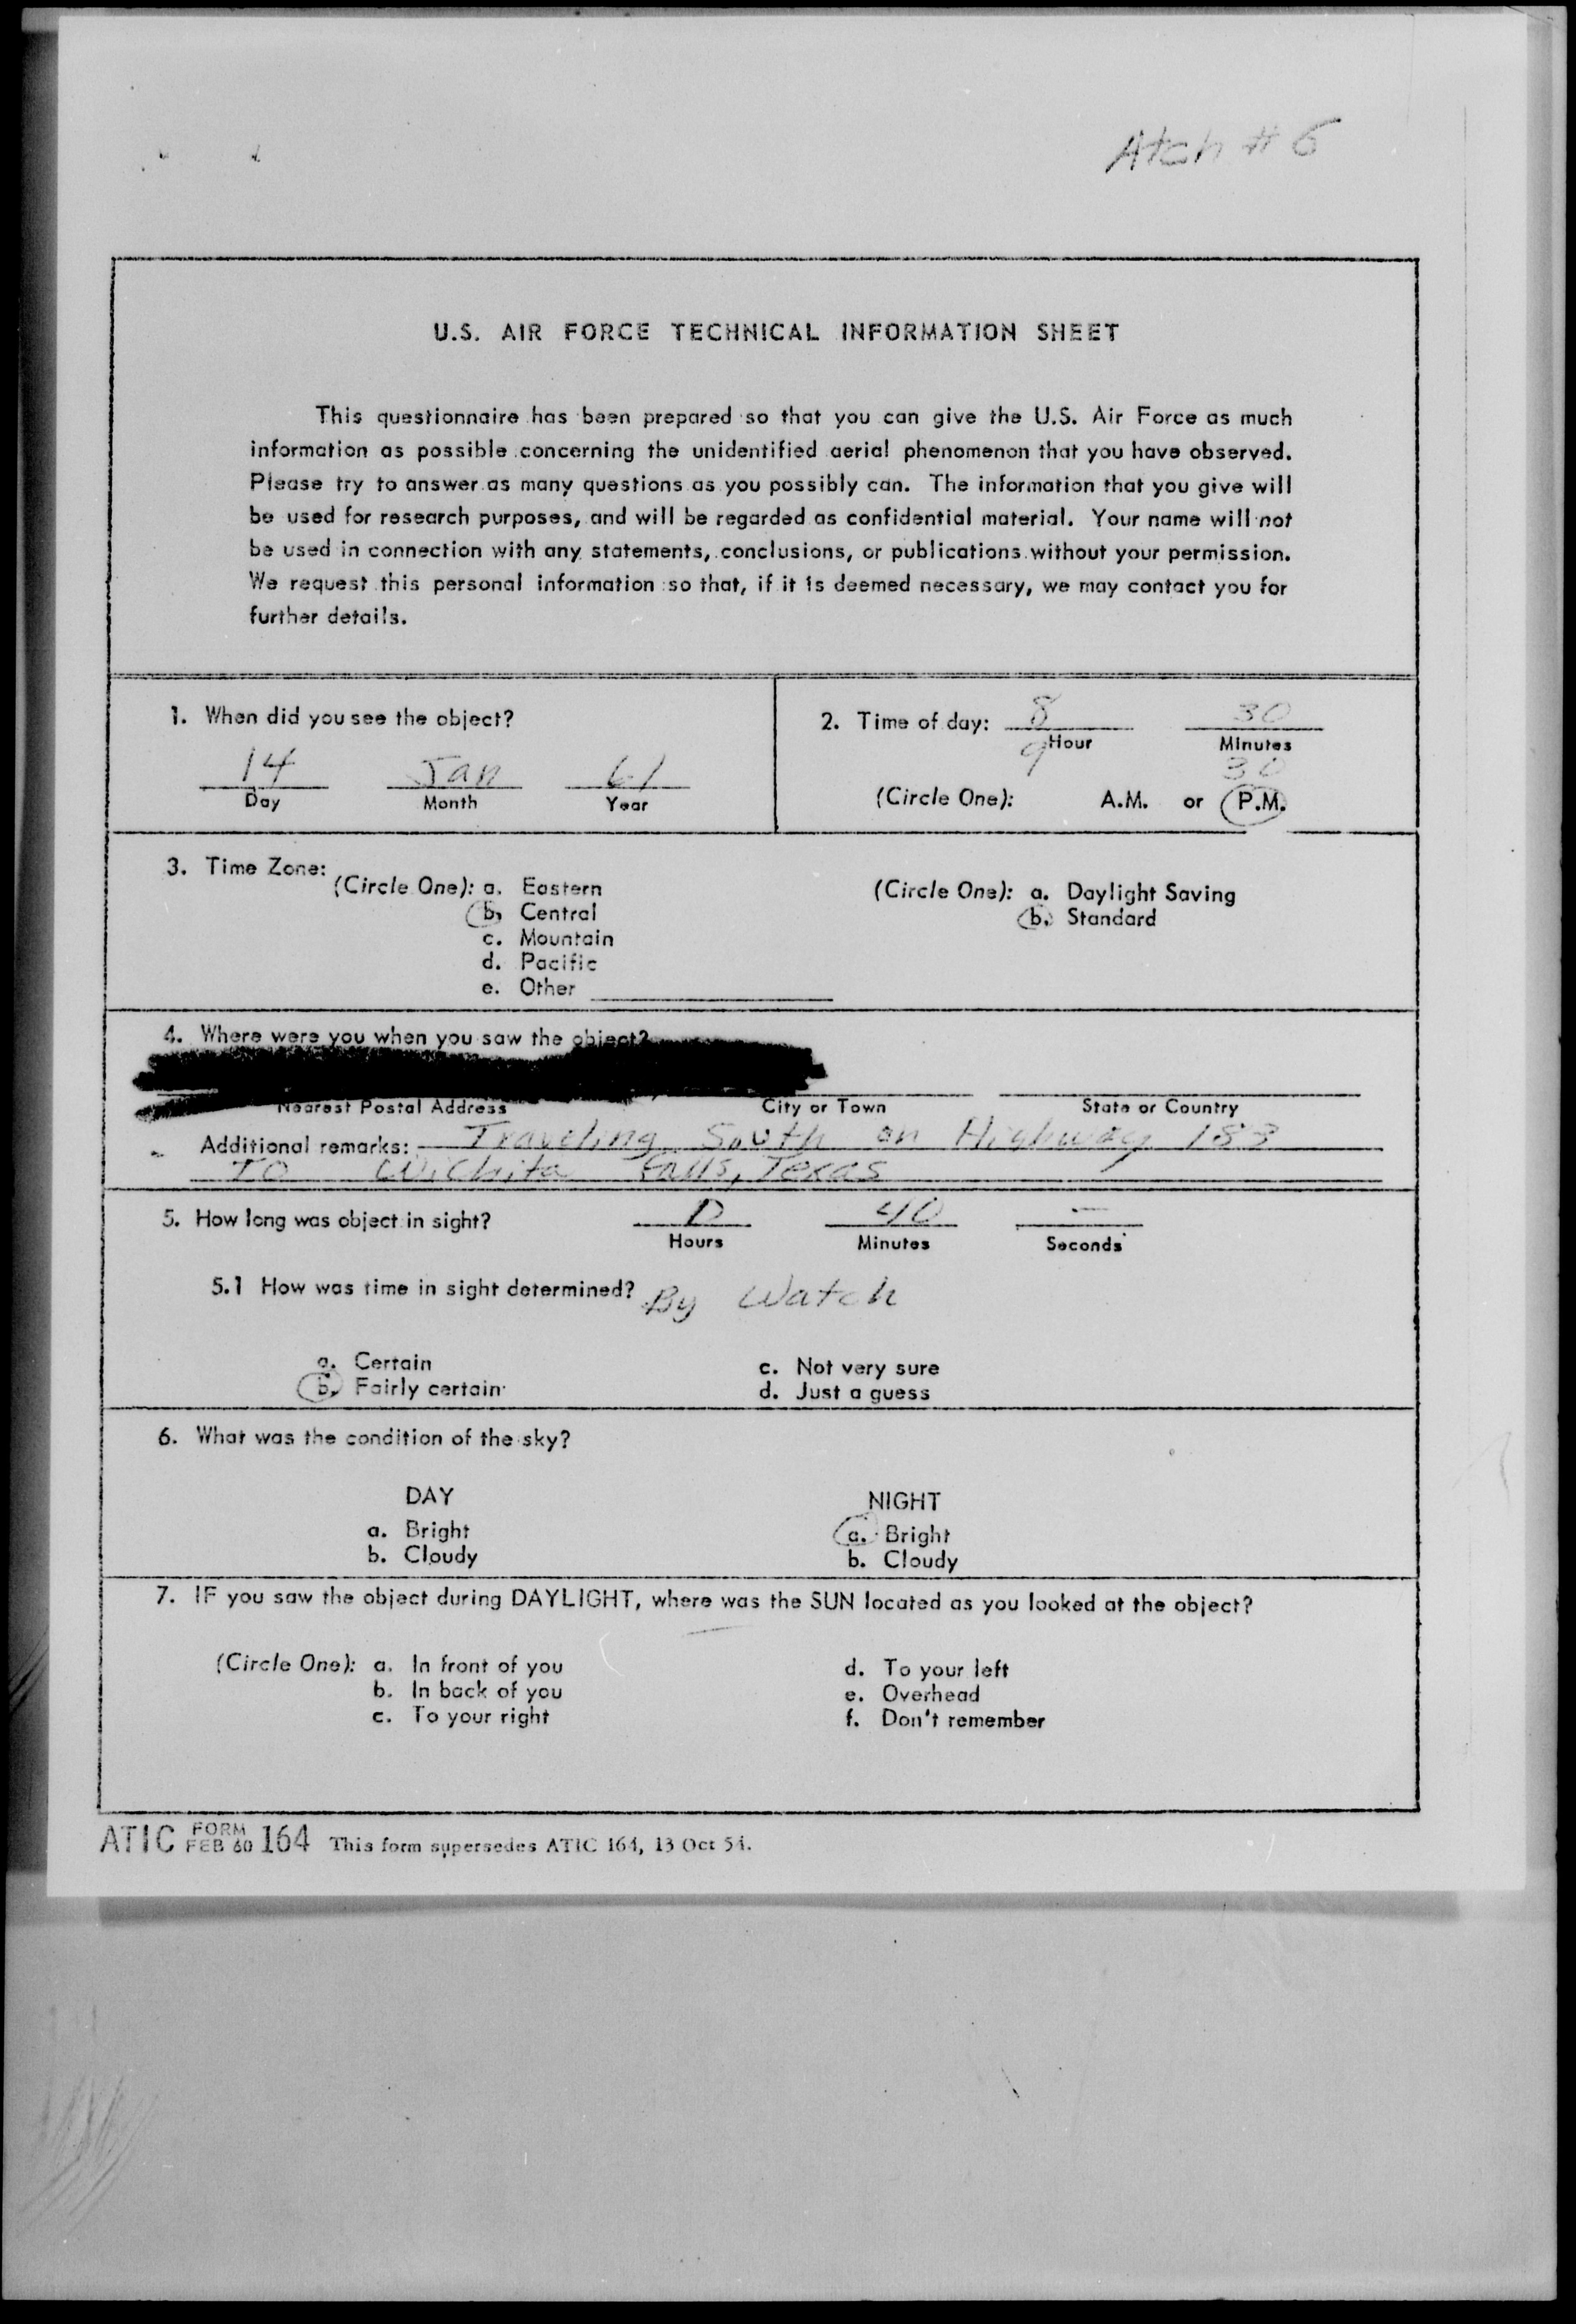 Atch # 6
U.S. AIR FORCE TECHNICAL INFORMATION SHEET
This questionnaire has been prepared so that you can give the U.S. Air Force as much
information as possible concerning the unidentified aerial phenomenon that you have observed.
Please try to answer as many questions as you possibly can. The information that you give will
be used for research purposes, and will be regarded as confidential material. Your name will not
be used in connection with any statements, conclusions, or publications without your permission.
We request this personal information so that, if it is deemed necessary, we may contact you for
further details.
1. When did you see the object?
14 Jan 61
Day Month Year
2. Time of day: 8 30
Hour Minutes
9 30
(Circle One): A.M. or P.M.
3. Time Zone:
(Circle One): a. Eastern
b. Central
c. Mountain
d. Pacific
e. Other
(Circle One): a. Daylight Saving
b. Standard
4. Where were you when you saw the object?
Nearest Postal Address City or Town State or Country
Additional remarks: Traveling South on Highway 183
To Wichita Falls, Texas
5. How long was object in sight? 0 40 -
Hours Minutes Seconds
5.1 How was time in sight determined? By Watch
a. Certain c. Not very sure
b. Fairly certain d. Just a guess
6. What was the condition of the sky?
DAY NIGHT
a. Bright a. Bright
b. Cloudy b. Cloudy
7. IF you saw the object during DAYLIGHT, where was the SUN located as you looked at the object?
(Circle One): a. In front of you d. To your left
b. In back of you e. Overhead
c. To your right f. Don't remember
ATIC FORM FEB 60 164 This form supersedes ATIC 164, 13 Oct 54.